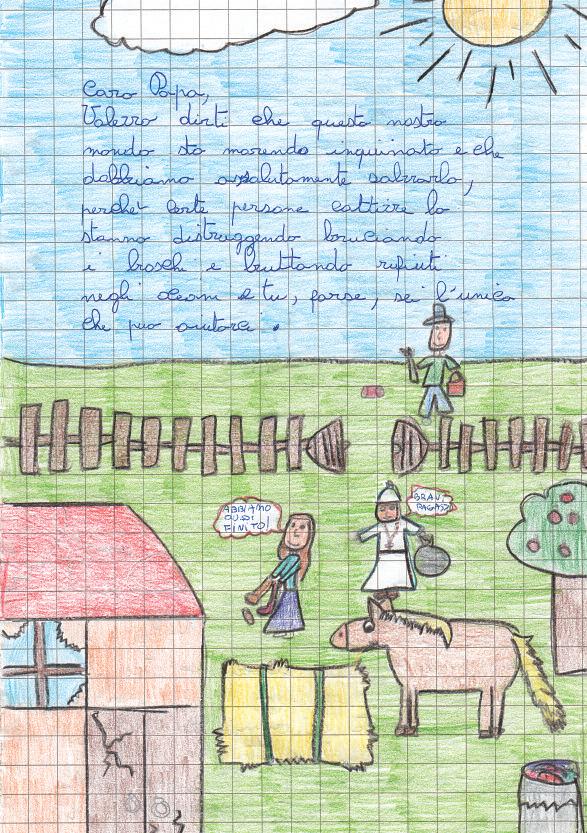 Caro Papa,
Valerro dirti che questo nostro
mondo sta morendo inquinato e che
dabbiamo assolutamente salvarlo,
perchè certe persone cattive lo
stanno distruggendo bruciando
i boschi e buttando rifiuti
negli oceani e tu, forse, sei l'unico
che puo aiutarci.
ABBIAMO
QUASI
FINITO!
BRAVI
RAGAZZI